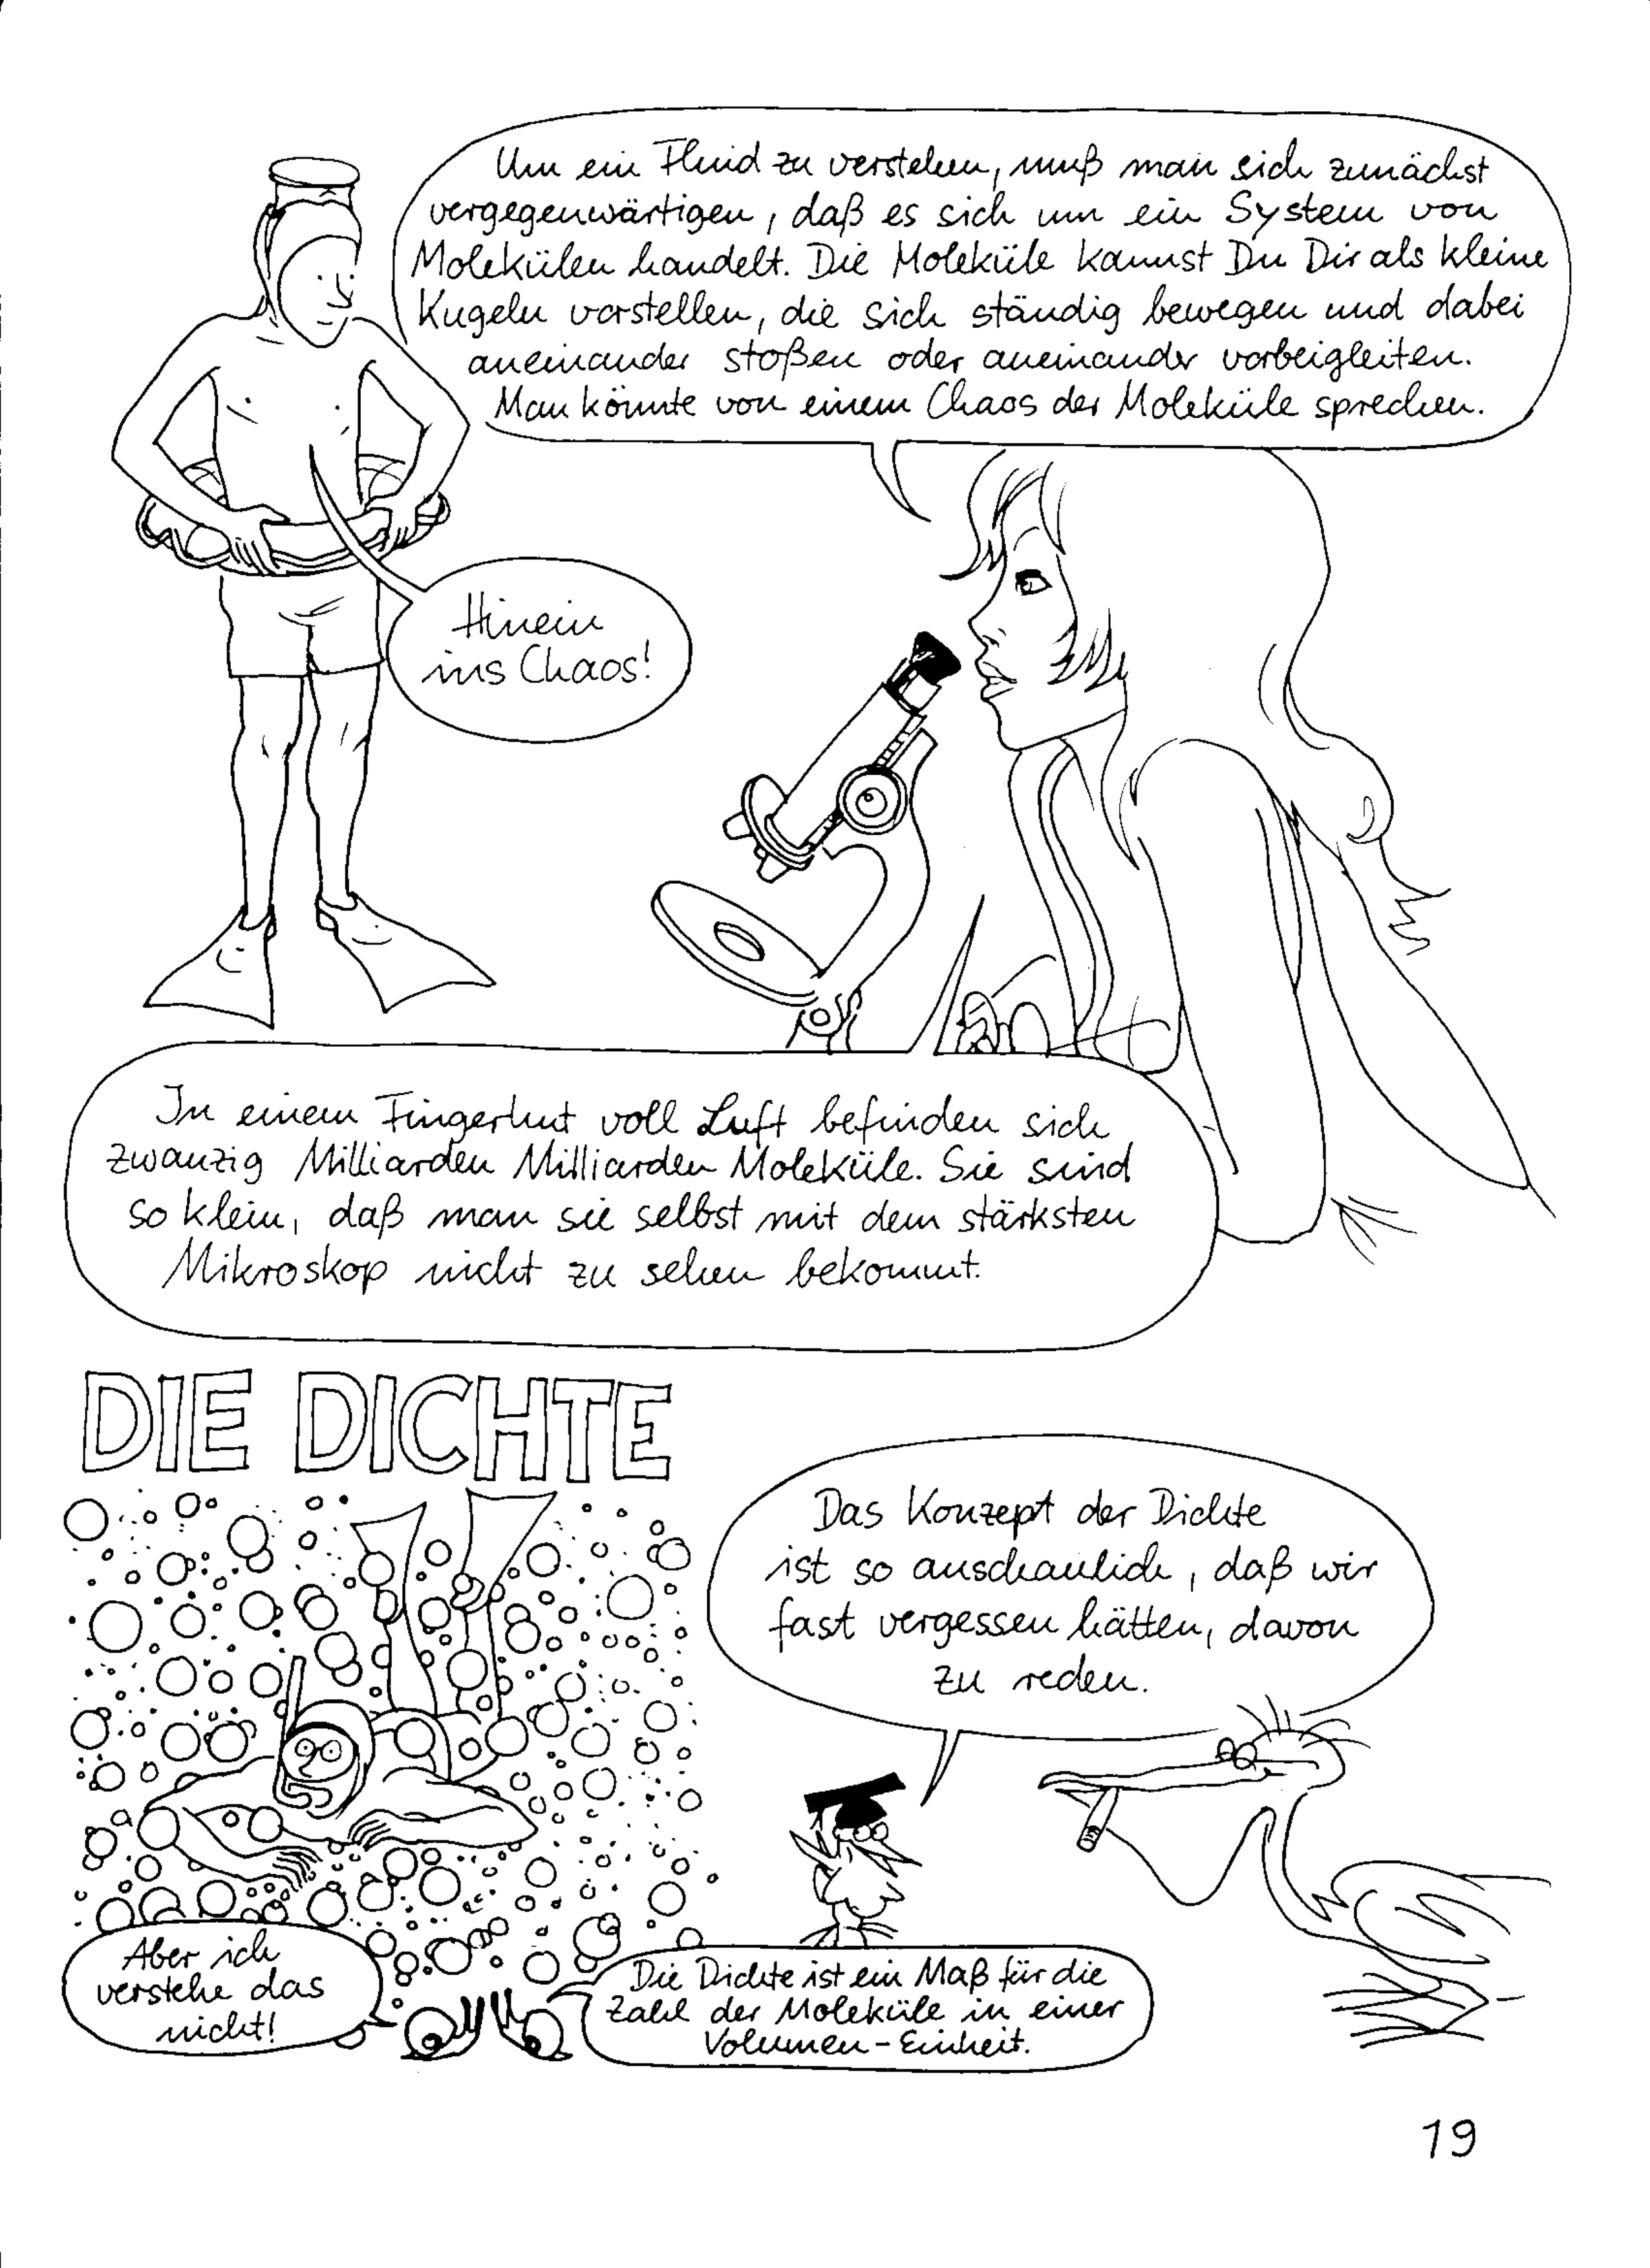 Um ein Fluid zu verstehen, muß man sich zunächst
vergegenwärtigen, daß es sich um ein System von
Molekülen handelt. Die Moleküle kannst Du Dir als kleine
Kugeln vorstellen, die sich ständig bewegen und dabei
aneinander stoßen oder aneinander vorbeigleiten.
Man könnte von einem Chaos der Moleküle sprechen.
Hinein
ins Chaos!
In einem Fingerhut voll Luft befinden sich
zwanzig Milliarden Milliarden Moleküle. Sie sind
so klein, daß man sie selbst mit dem stärksten
Mikroskop nicht zu sehen bekommt.
DIE DICHTE
Das Konzept der Dichte
ist so anschaulich, daß wir
fast vergessen hätten, davon
zu reden.
Aber ich
verstehe das
nicht!
Die Dichte ist ein Maß für die
Zahl der Moleküle in einer
Volumen-Einheit.
19